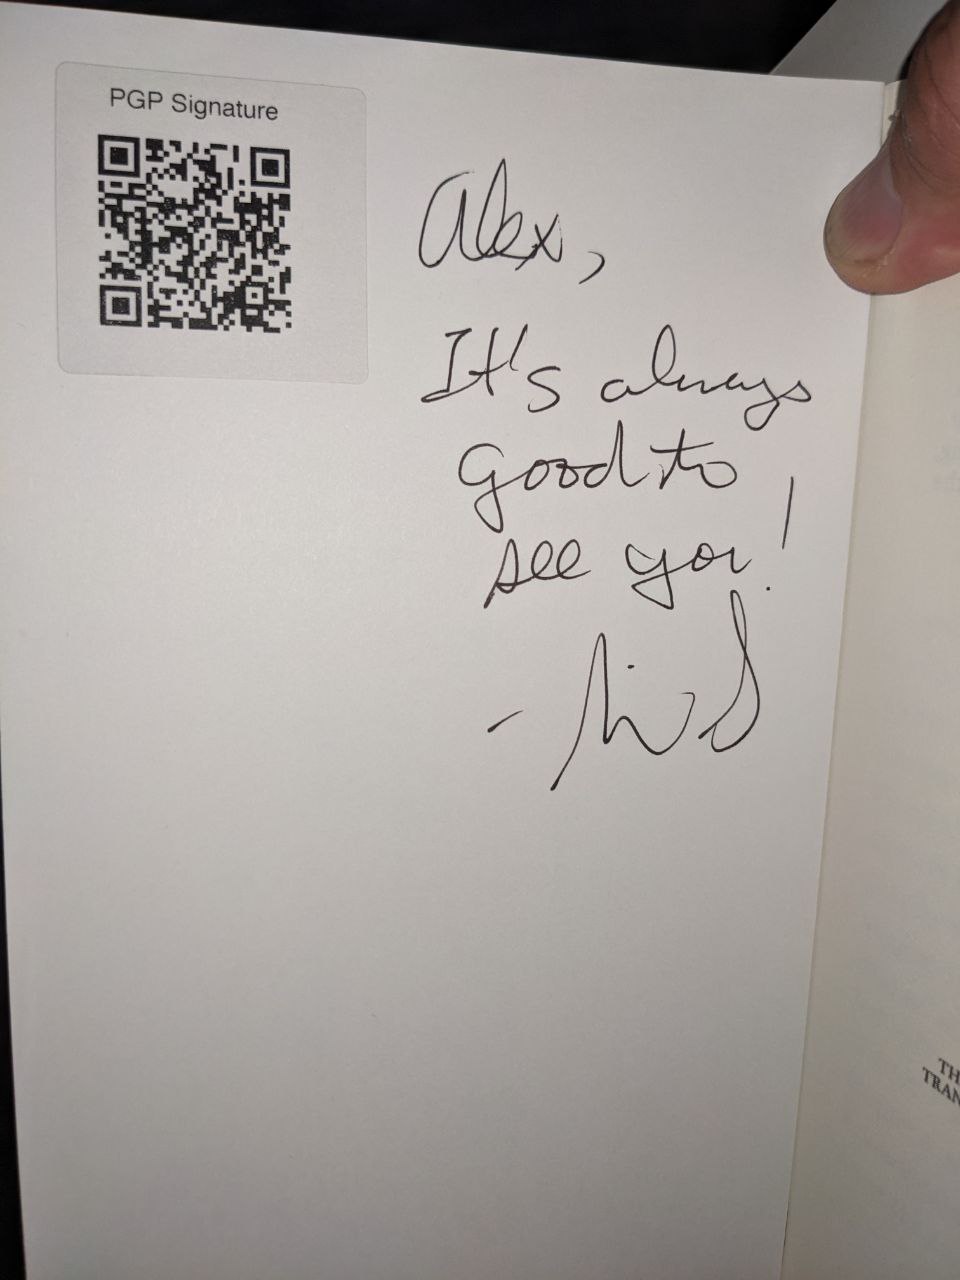 PGP Signature
Alex,
It's always
good to
see you!
TH
TRAN